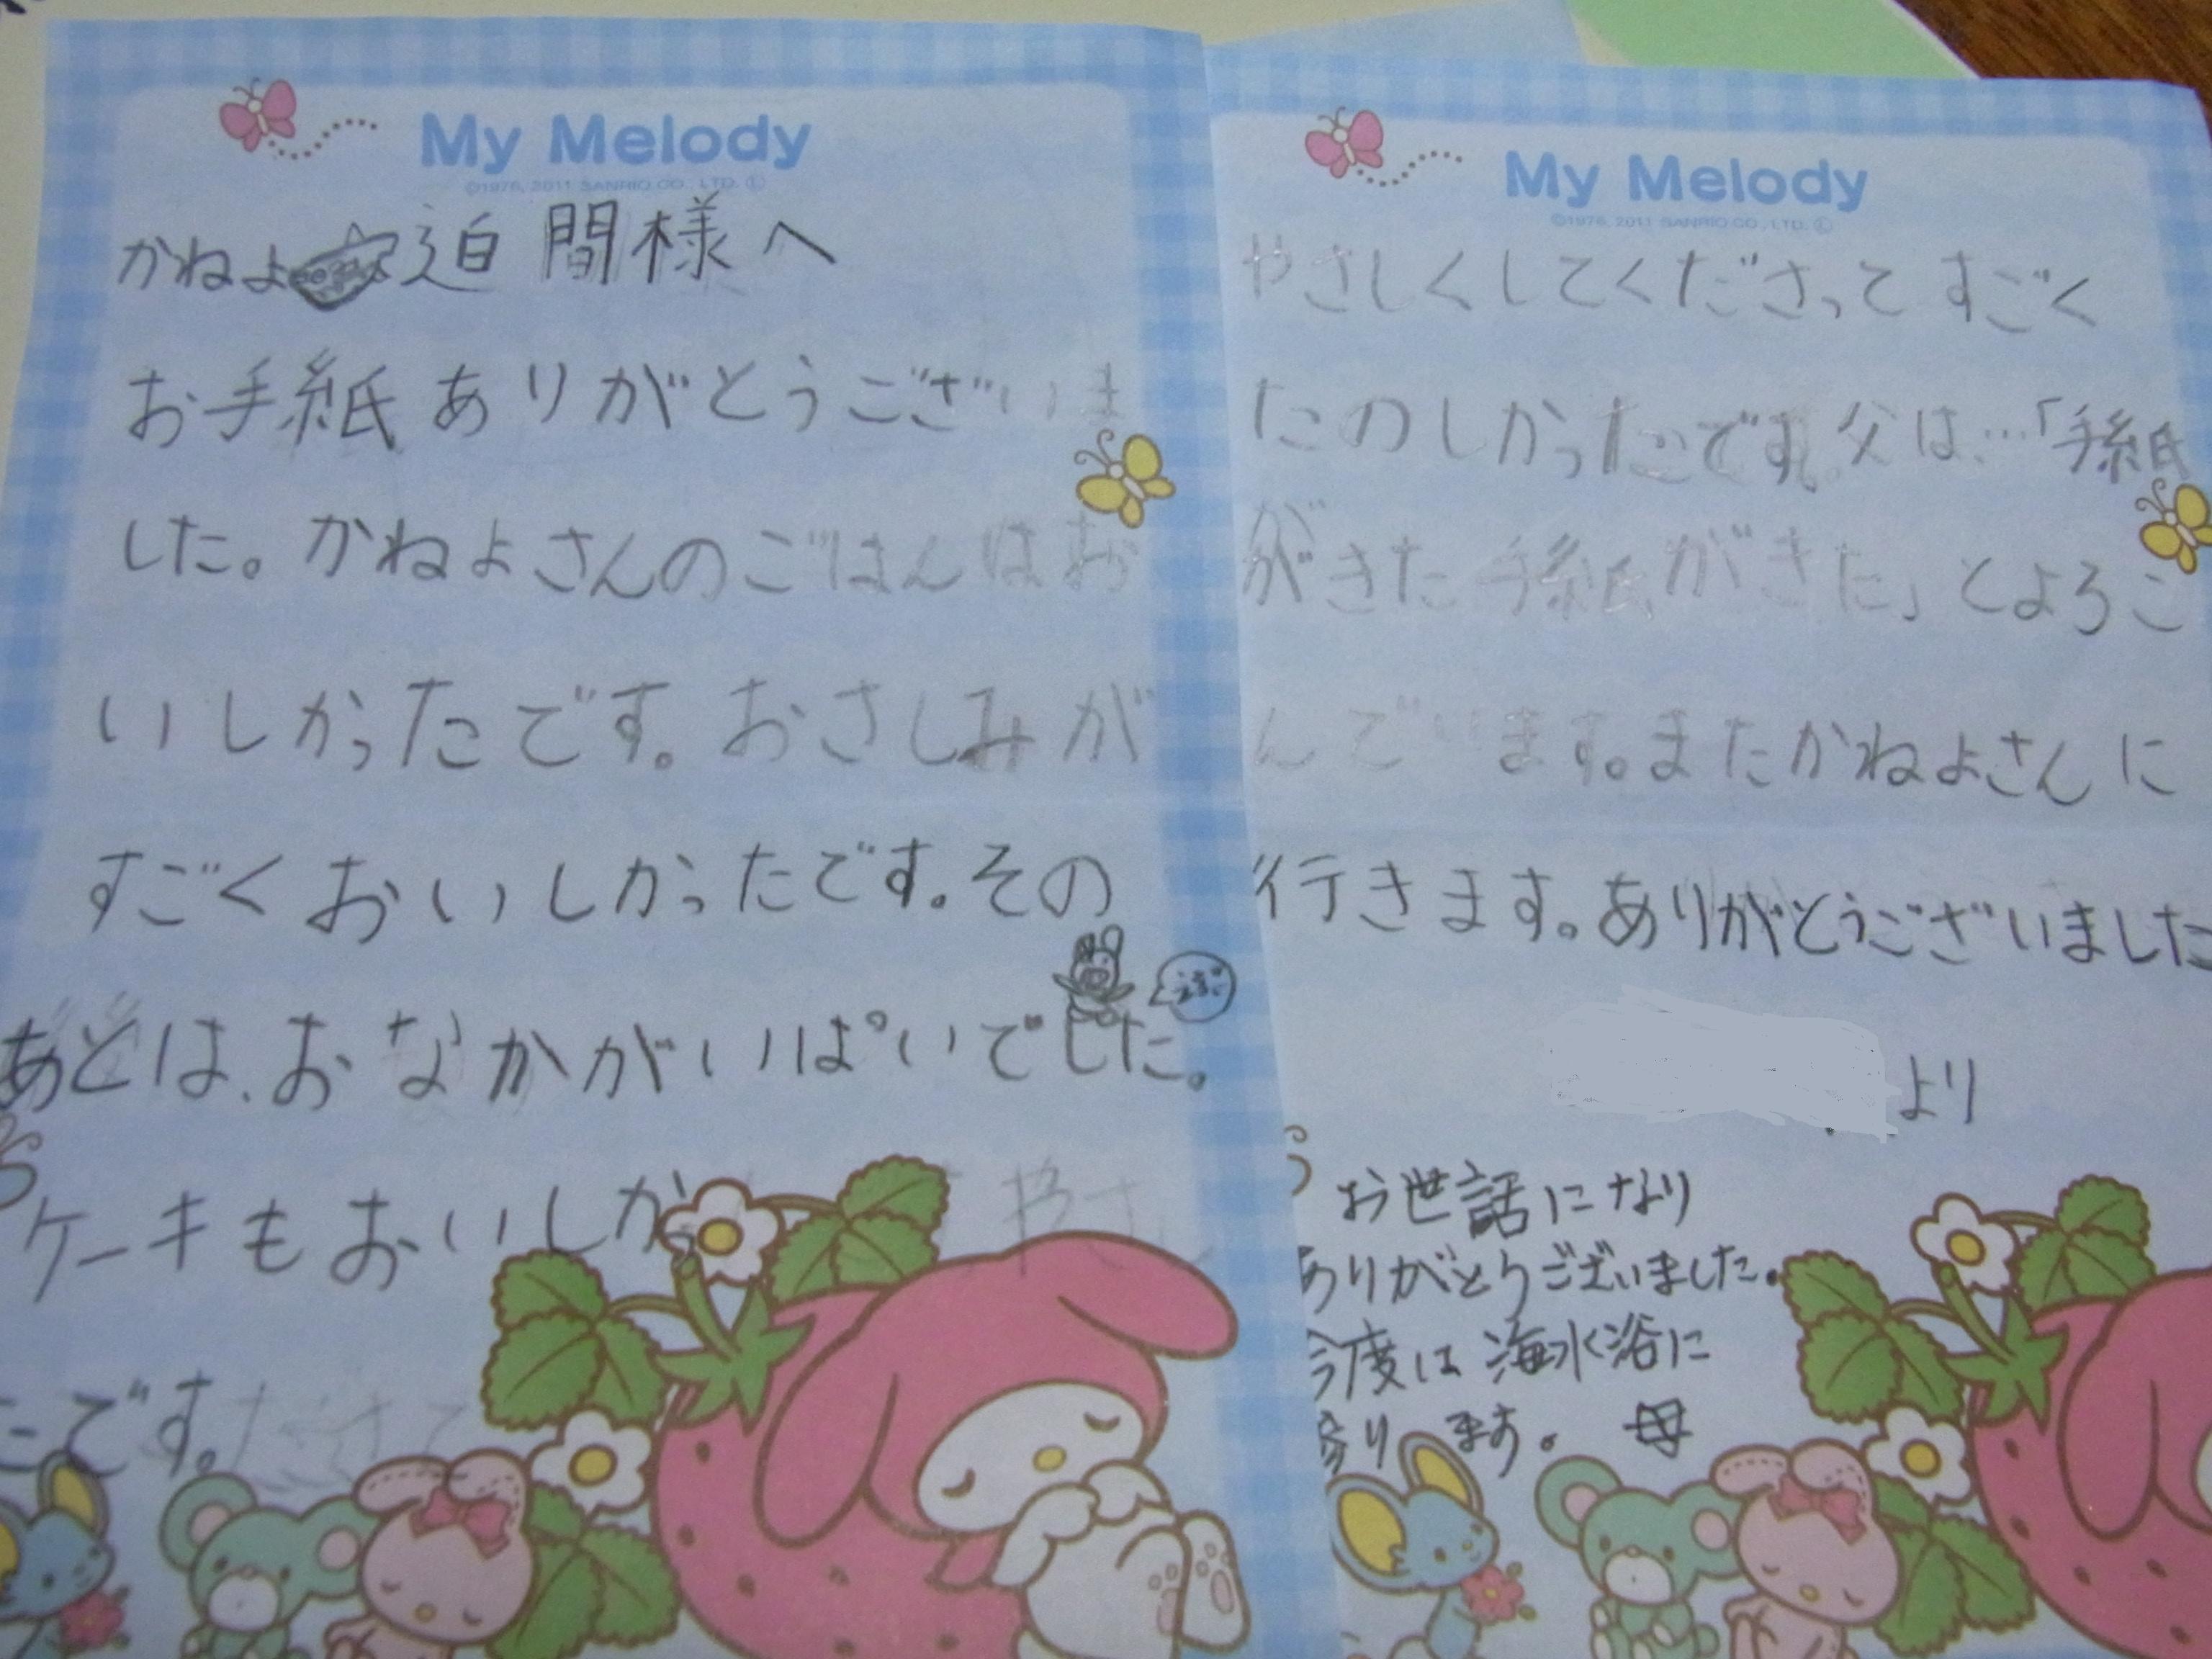 My Melody
©1976, 2011 SANRIO CO., LTD. Ⓛ
かねよ 迫間様へ
お手紙ありがとうございま
した。かねよさんのごはんはお
いしかったです。おさしみが
すごくおいしかったです。その
あとは、おなかがいぱいでした。
ケーキもおいしかっ
たです。
My Melody
©1976, 2011 SANRIO CO., LTD. Ⓛ
やさしくしてくださってすごく
たのしかったです。父は…「手紙
がきた手紙がきた」とよろこ
んでいます。またかねよさんに
行きます。ありがとうございました
より
お世話になり
ありがとうございました。
今度は海水浴に
参ります。 母